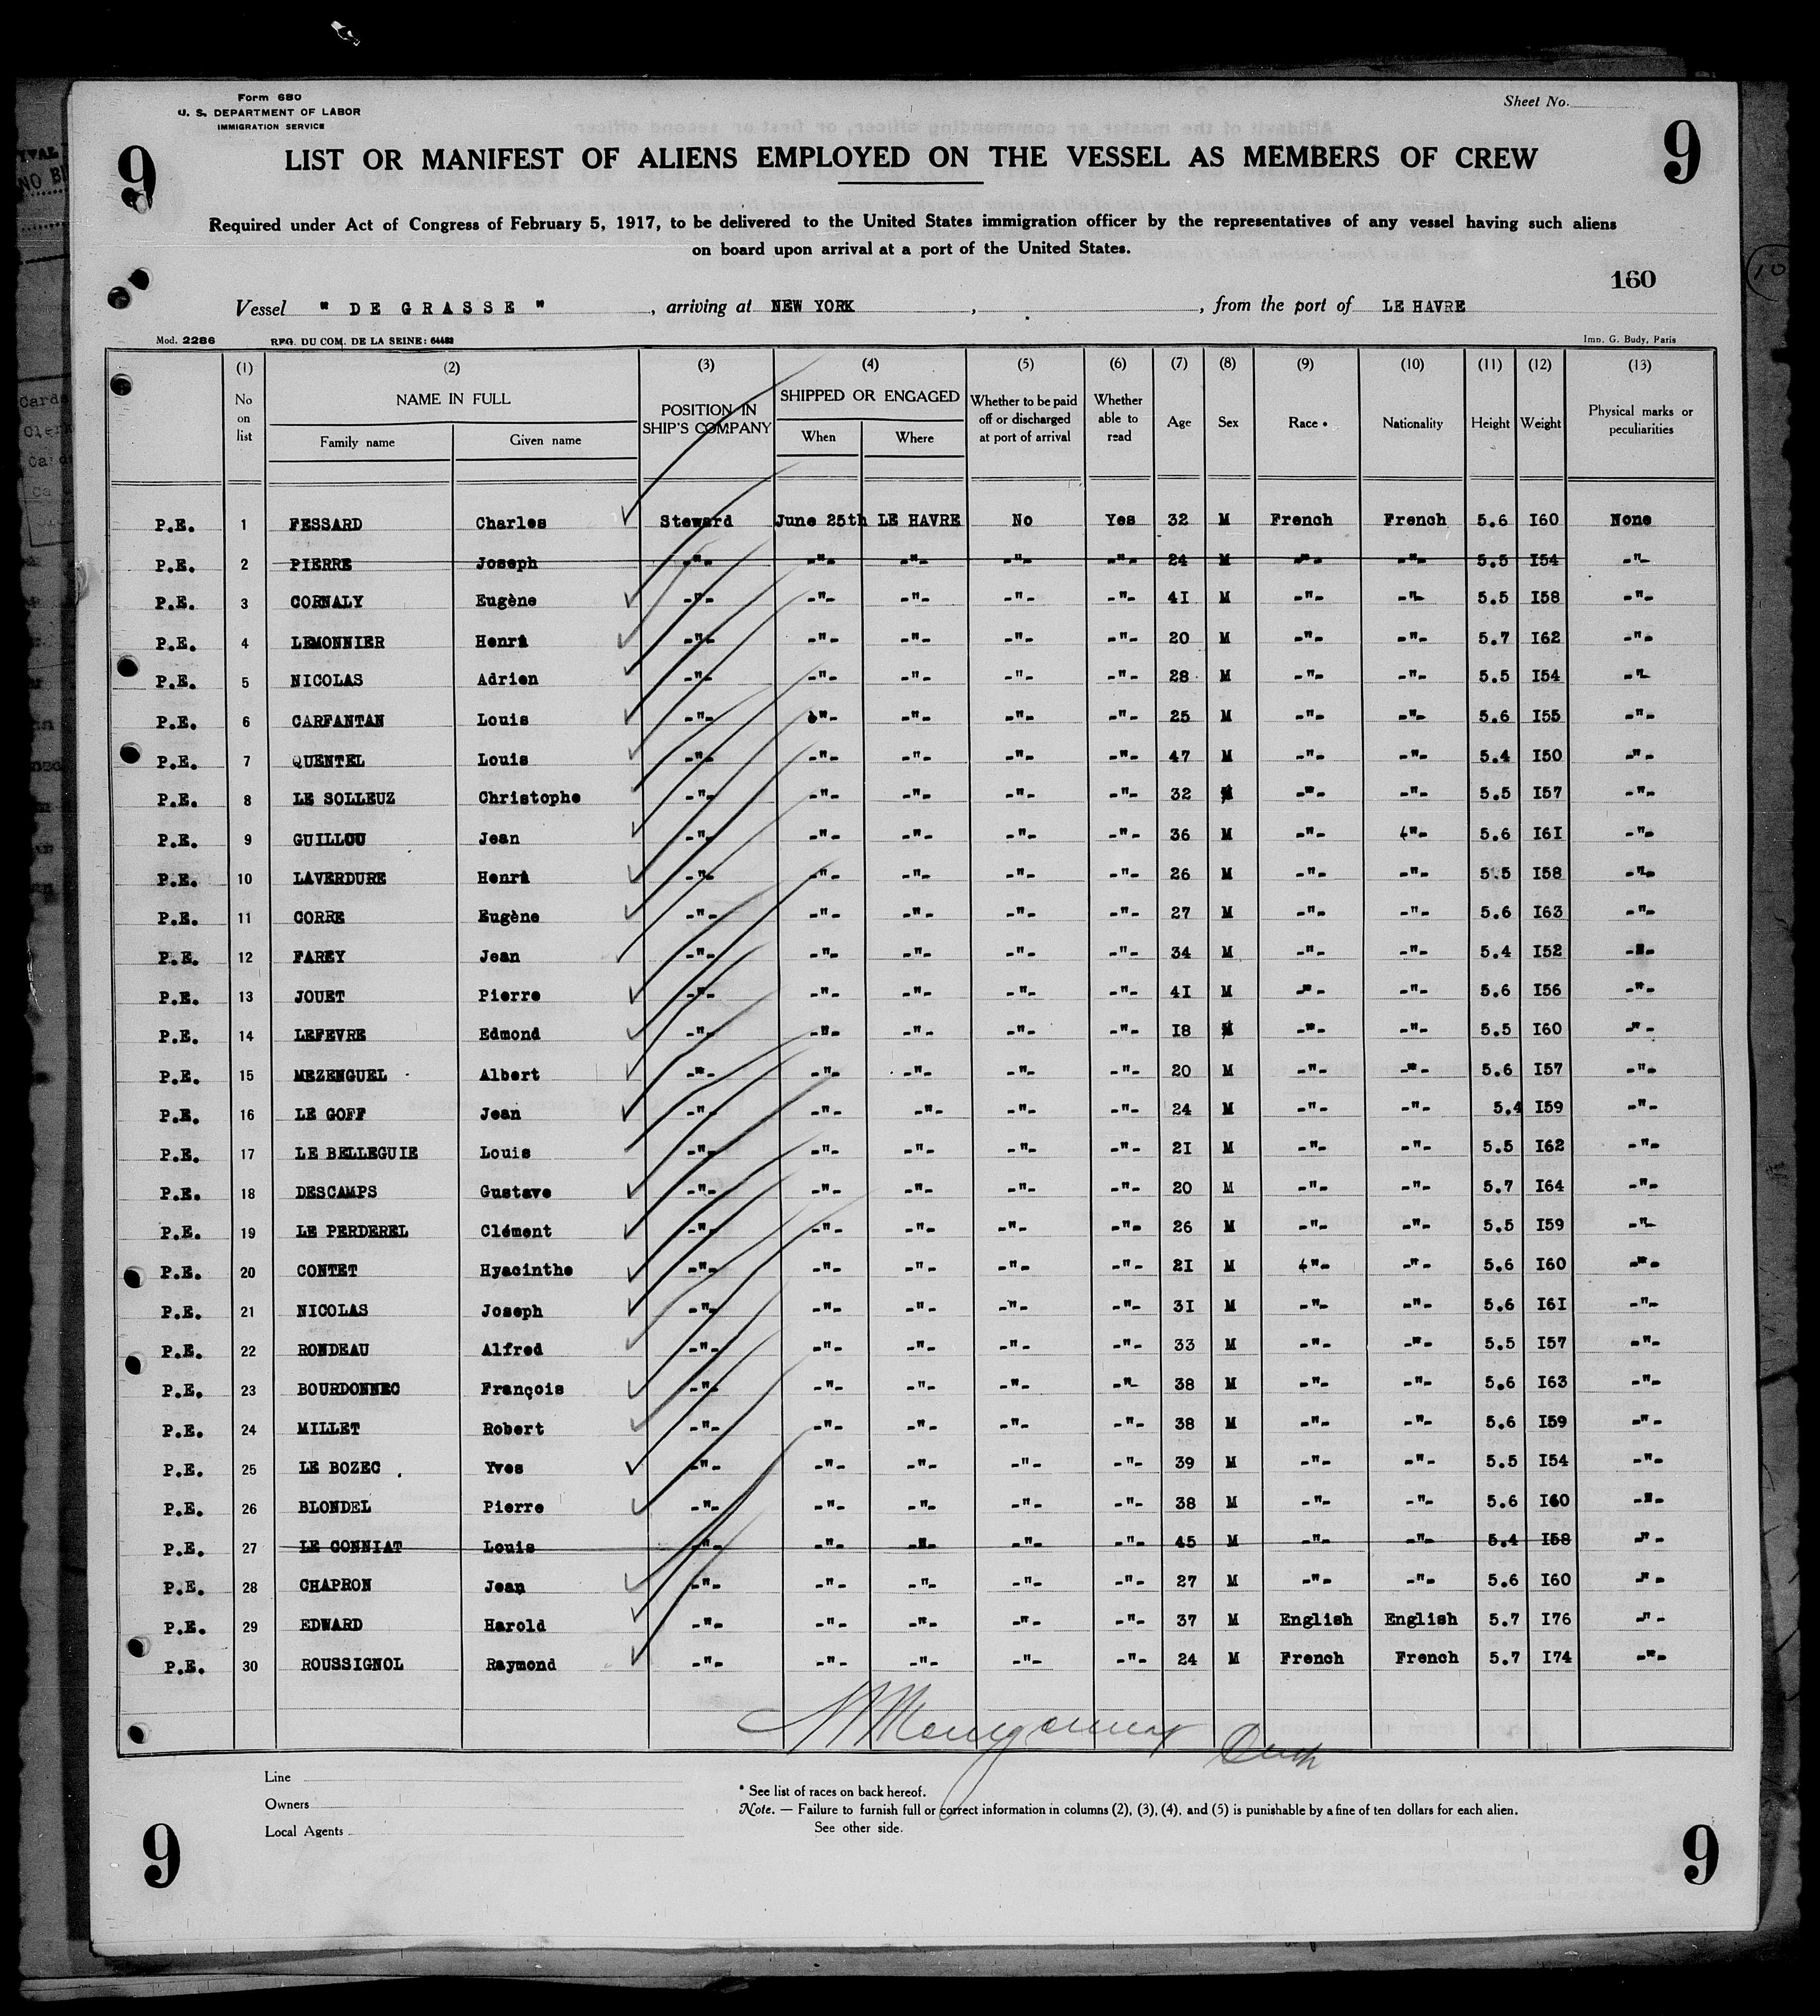 Form 680
U. S. DEPARTMENT OF LABOR
IMMIGRATION SERVICE
Sheet No.
9 9
LIST OR MANIFEST OF ALIENS EMPLOYED ON THE VESSEL AS MEMBERS OF CREW
Required under Act of Congress of February 5, 1917, to be delivered to the United States immigration officer by the representatives of any vessel having such aliens
on board upon arrival at a port of the United States.
160
Vessel " DE GRASSE " , arriving at NEW YORK , , from the port of LE HAVRE
Mod. 2286 REG. DU COM. DE LA SEINE: 64482 Imp. G. Budy, Paris
(1) (2) (3) (4) (5) (6) (7) (8) (9) (10) (11) (12) (13)
No on list NAME IN FULL Family name Given name POSITION IN SHIP'S COMPANY SHIPPED OR ENGAGED When Where Whether to be paid off or discharged at port of arrival Whether able to read Age Sex Race • Nationality Height Weight Physical marks or peculiarities
P.E. 1 FESSARD Charles Steward June 25th LE HAVRE No Yes 32 M French French 5.6 I60 None
P.E. 2 PIERRE Joseph -"- -"- -"- -"- -"- 24 M -"- -"- 5.5 I54 -"-
P.E. 3 CORNALY Eugène -"- -"- -"- -"- -"- 4I M -"- -"- 5.5 I58 -"-
P.E. 4 LEMONNIER Henri -"- -"- -"- -"- -"- 20 M -"- -"- 5.7 I62 -"-
P.E. 5 NICOLAS Adrien -"- -"- -"- -"- -"- 28 M -"- -"- 5.5 I54 -"-
P.E. 6 CARFANTAN Louis -"- -"- -"- -"- -"- 25 M -"- -"- 5.6 I55 -"-
P.E. 7 QUENTEL Louis -"- -"- -"- -"- -"- 47 M -"- -"- 5.4 I50 -"-
P.E. 8 LE SOLLEUZ Christophe -"- -"- -"- -"- -"- 32 M -"- -"- 5.5 I57 -"-
P.E. 9 GUILLOU Jean -"- -"- -"- -"- -"- 36 M -"- -"- 5.6 I6I -"-
P.E. 10 LAVERDURE Henri -"- -"- -"- -"- -"- 26 M -"- -"- 5.5 I58 -"-
P.E. 11 CORRE Eugène -"- -"- -"- -"- -"- 27 M -"- -"- 5.6 I63 -"-
P.E. 12 FAREY Jean -"- -"- -"- -"- -"- 34 M -"- -"- 5.4 I52 -"-
P.E. 13 JOUET Pierre -"- -"- -"- -"- -"- 4I M -"- -"- 5.6 I56 -"-
P.E. 14 LEFEVRE Edmond -"- -"- -"- -"- -"- I8 M -"- -"- 5.5 I60 -"-
P.E. 15 MEZENGUEL Albert -"- -"- -"- -"- -"- 20 M -"- -"- 5.6 I57 -"-
P.E. 16 LE GOFF Jean -"- -"- -"- -"- -"- 24 M -"- -"- 5.4 I59 -"-
P.E. 17 LE BELLEGUIE Louis -"- -"- -"- -"- -"- 2I M -"- -"- 5.5 I62 -"-
P.E. 18 DESCAMPS Gustave -"- -"- -"- -"- -"- 20 M -"- -"- 5.7 I64 -"-
P.E. 19 LE PERDEREL Clément -"- -"- -"- -"- -"- 26 M -"- -"- 5.5 I59 -"-
P.E. 20 CONTET Hyacinthe -"- -"- -"- -"- -"- 2I M -"- -"- 5.6 I60 -"-
P.E. 21 NICOLAS Joseph -"- -"- -"- -"- -"- 3I M -"- -"- 5.6 I6I -"-
P.E. 22 RONDEAU Alfred -"- -"- -"- -"- -"- 33 M -"- -"- 5.5 I57 -"-
P.E. 23 BOURDONNEC François -"- -"- -"- -"- -"- 38 M -"- -"- 5.6 I63 -"-
P.E. 24 MILLET Robert -"- -"- -"- -"- -"- 38 M -"- -"- 5.6 I59 -"-
P.E. 25 LE BOZEC Yves -"- -"- -"- -"- -"- 39 M -"- -"- 5.5 I54 -"-
P.E. 26 BLONDEL Pierre -"- -"- -"- -"- -"- 38 M -"- -"- 5.6 I60 -"-
P.E. 27 LE CONNIAT Louis -"- -"- -"- -"- -"- 45 M -"- -"- 5.4 I58 -"-
P.E. 28 CHAPRON Jean -"- -"- -"- -"- -"- 27 M -"- -"- 5.6 I60 -"-
P.E. 29 EDWARD Harold -"- -"- -"- -"- -"- 37 M English English 5.7 I76 -"-
P.E. 30 ROUSSIGNOL Raymond -"- -"- -"- -"- -"- 24 M French French 5.7 I74 -"-
Line
Owners
Local Agents
* See list of races on back hereof.
Note. — Failure to furnish full or correct information in columns (2), (3), (4), and (5) is punishable by a fine of ten dollars for each alien.
See other side.
9 9